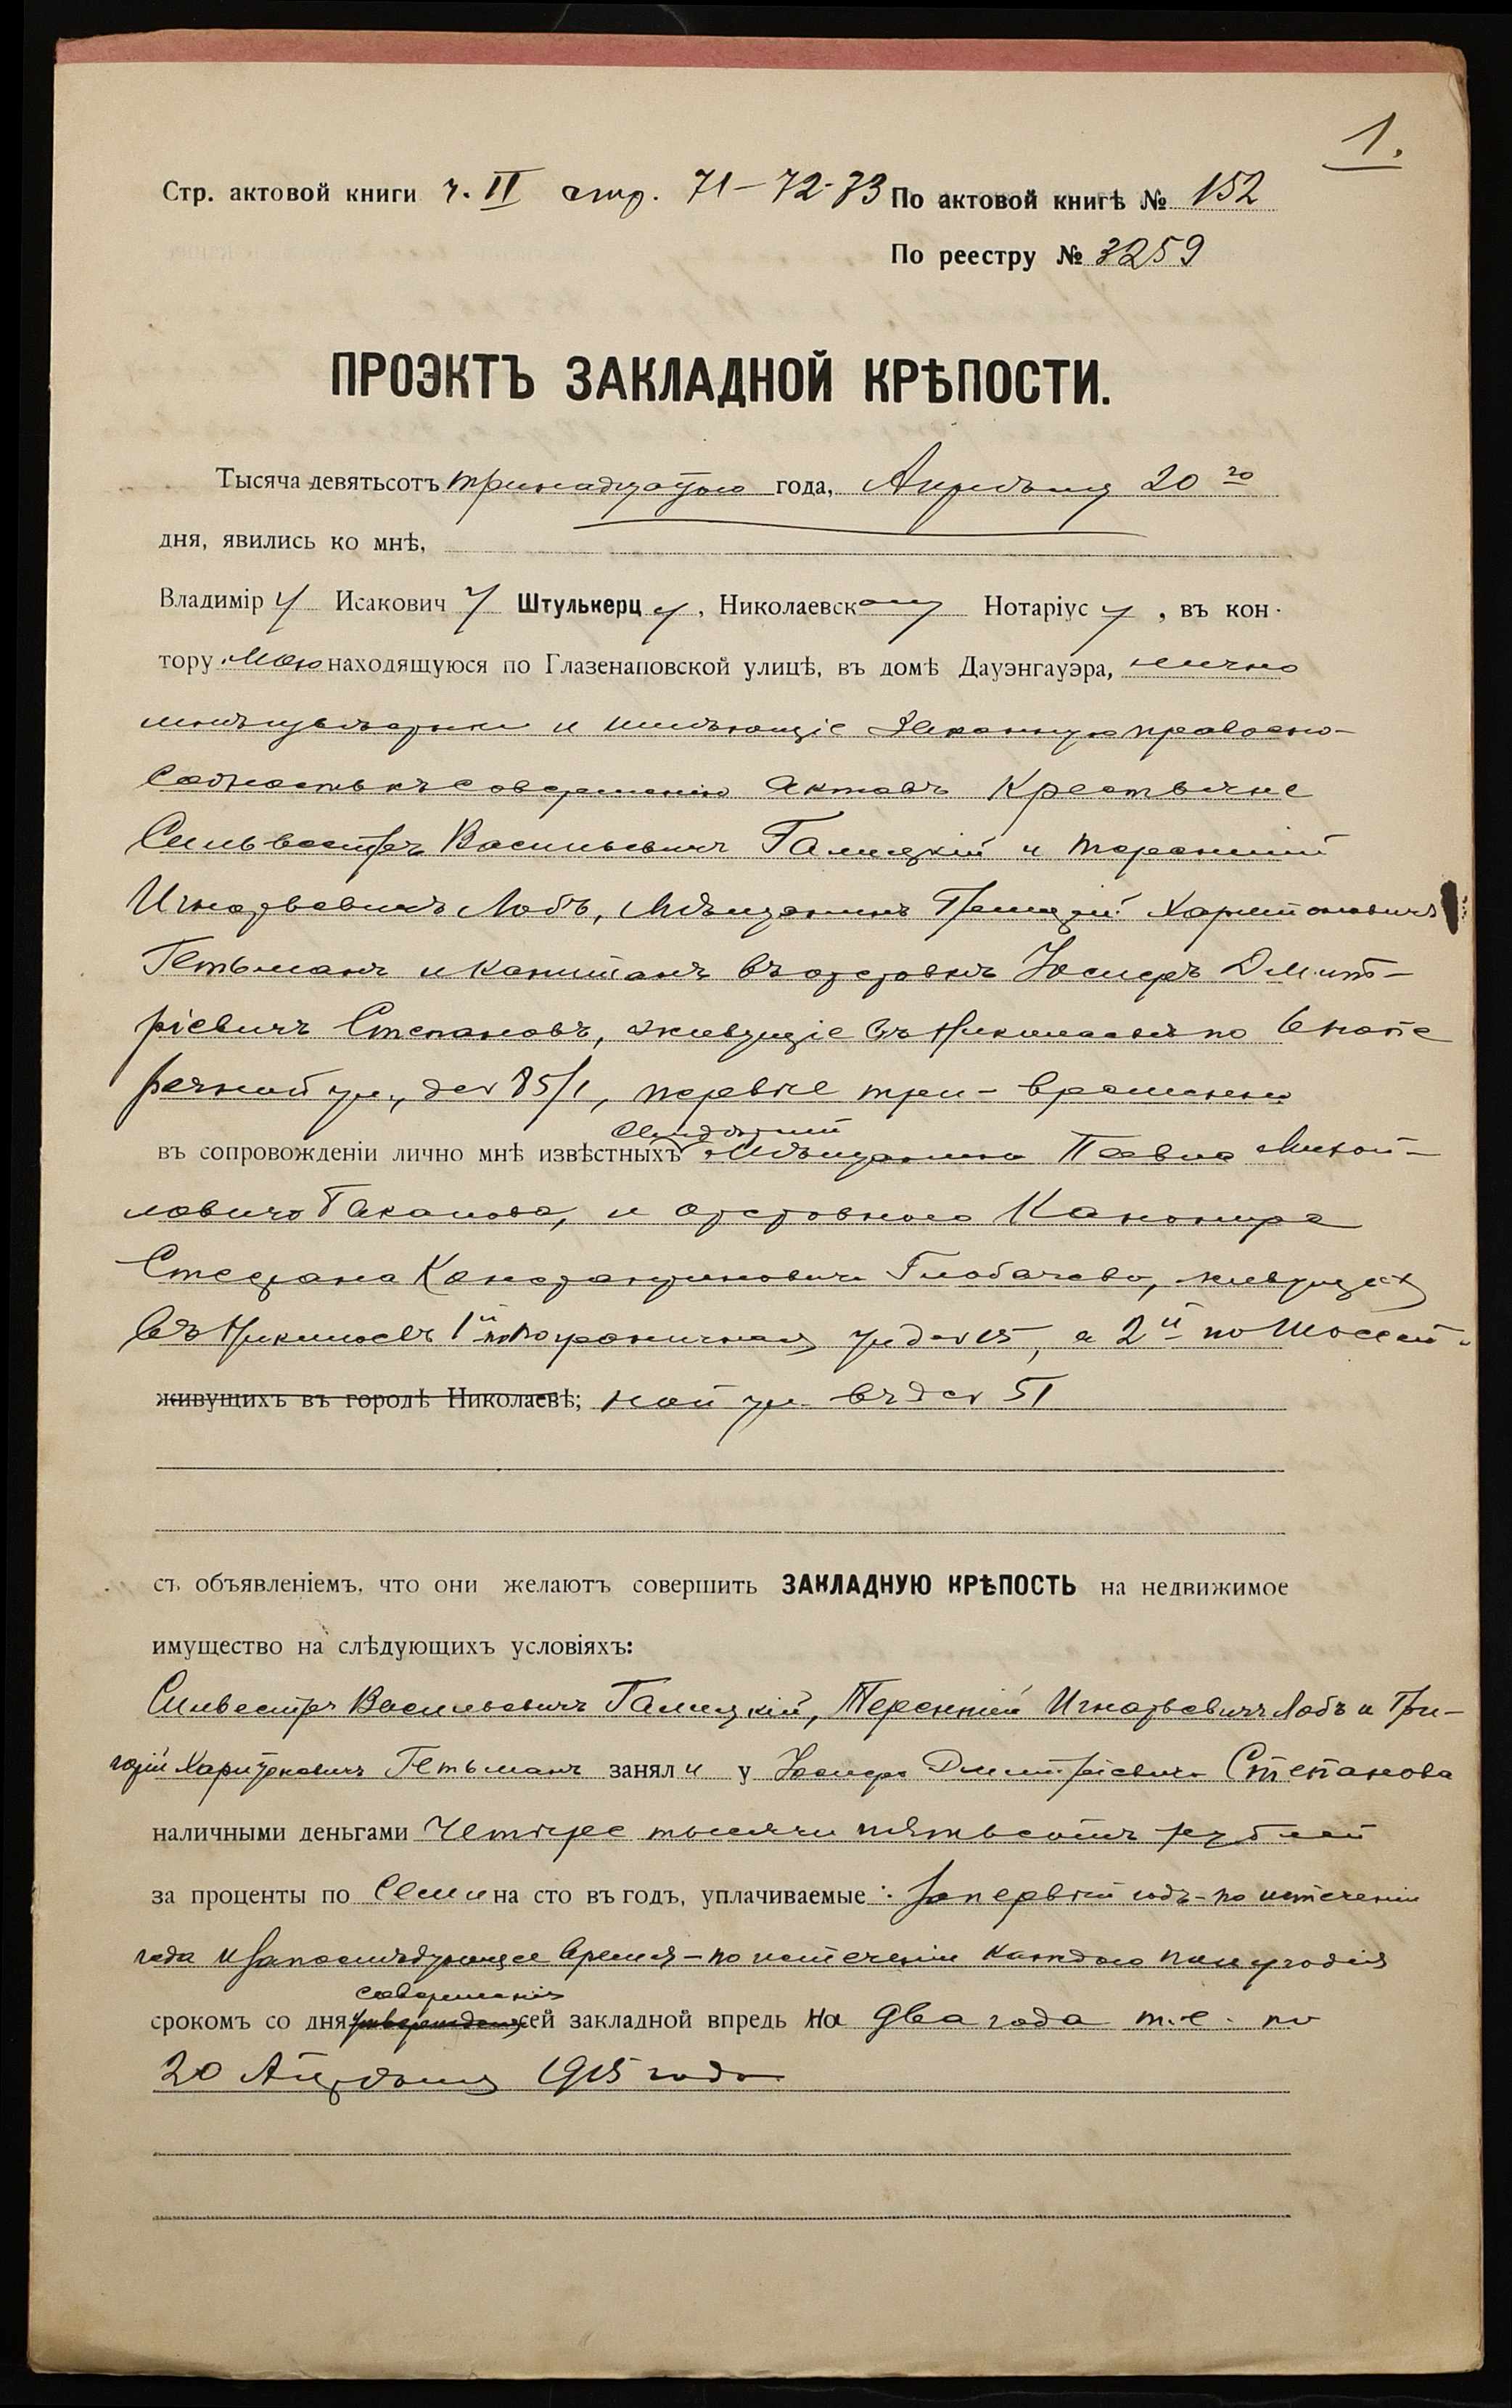 1.
Стр. актовой книги ч. II стр. 71-72-73 По актовой книгѣ № 152
По реестру № 3259
ПРОЭКТЪ ЗАКЛАДНОЙ КРѢПОСТИ.
Тысяча девятьсотъ тринадцатого года, Апрѣля 20 го
дня, явились ко мнѣ,
Владимір у Исакович у Штулькерц у, Николаевскому Нотаріус у, въ кон-
тору мою находящуюся по Глазенаповской улицѣ, въ домѣ Дауэнгауэра, лично
мнѣ извѣстные и имѣющіе законную правоспо-
собность къ совершенію актовъ Крестьяне
Сильвестръ Васильевичъ Галицкій и Терентій
Игнатьевичъ Лобъ, Мѣщанинъ Григорій Харитоновичъ
Гетьманъ и Капитанъ въ отставкѣ Іосифъ Дмит-
ріевичъ Степановъ, живущіе въ Николаевѣ по 6 попе
речной ул., д № 85/1, первые три - временно
въ сопровожденіи лично мнѣ извѣстныхъ свидѣтелей Мѣщанина Павла Михай-
ловича Такапова, и отставного Канонира
Стефана Константиновича Глобачева, живущихъ
въ Николаевѣ 1й по Пограничной ул д № 15, а 2й по Шоссей-
живущихъ въ городѣ Николаевѣ; ной ул. въ д № 51
съ объявленіемъ, что они желаютъ совершить ЗАКЛАДНУЮ КРѢПОСТЬ на недвижимое
имущество на слѣдующихъ условіяхъ:
Сильвестръ Васильевичъ Галицкій, Терентій Игнатьевичъ Лобъ и Гри-
горій Харитоновичъ Гетьманъ занял и у Іосифа Дмитріевича Степанова
наличными деньгами Четыре тысячи пятьсотъ рублей
за проценты по семи на сто въ годъ, уплачиваемые: за первый годъ - по истеченіи
года и за послѣдующее время - по истеченіи каждаго полугодія
срокомъ со дня утвержденія совершенія сей закладной впредь на два года т.е. по
20 Апрѣля 1915 года